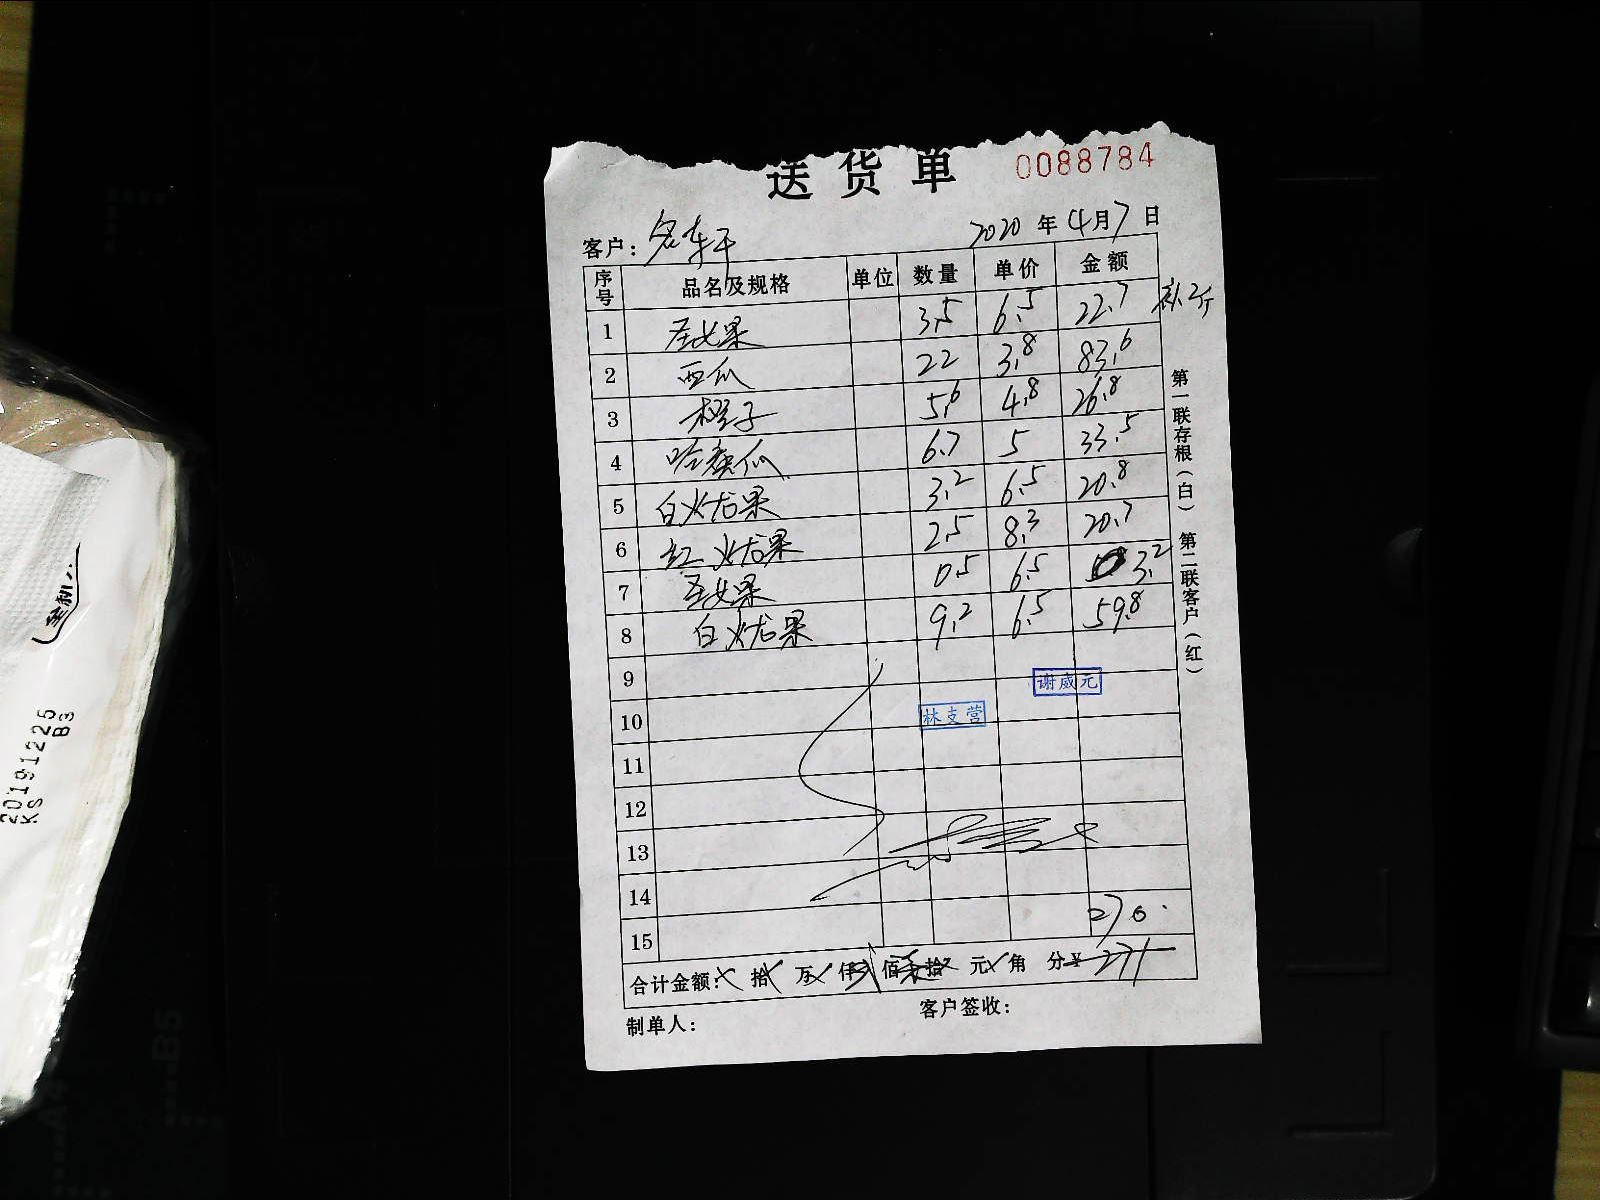 送货单 0088784
客户: 名车干 2020年4月7日
序号 品名及规格 单位 数量 单价 金额
1 圣女果 3.5 6.5 22.7 补2斤
2 西瓜 22 3.8 83.6
3 橙子 5.6 4.8 26.8
4 哈密瓜 6.7 5 33.5
5 白火龙果 3.2 6.5 20.8
6 红火龙果 2.5 8.3 20.7
7 圣女果 0.5 6.5 3.2
8 白火龙果 9.2 6.5 59.8
9
谢威元
10 林支营
11
12
13
14
270.
15
合计金额: 拾 万 仟 佰 拾 元 角 分¥ 271
制单人: 客户签收:
第一联存根(白) 第二联客户(红)
20191225
KS B3
B5